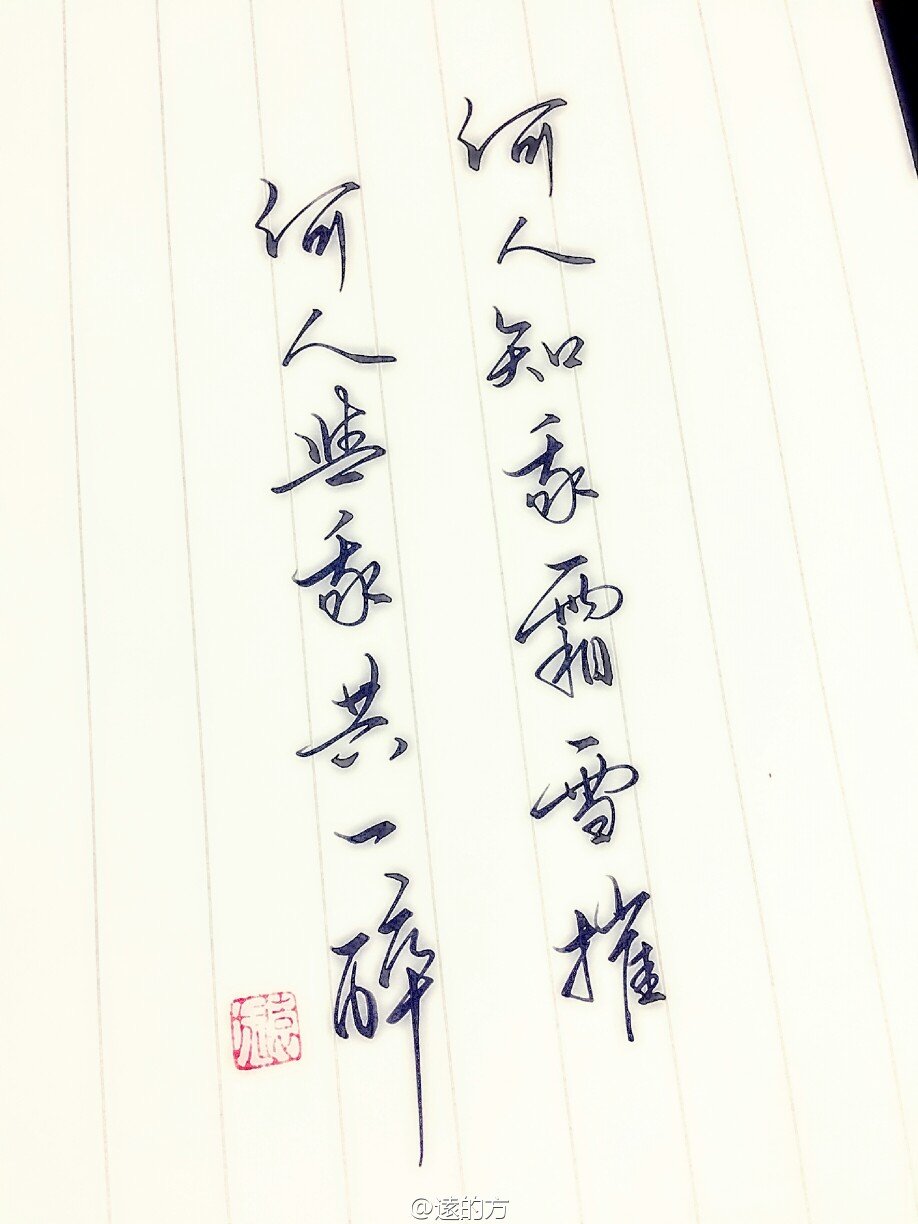 何人知我霜雪摧
何人与我共一醉
@遠的方